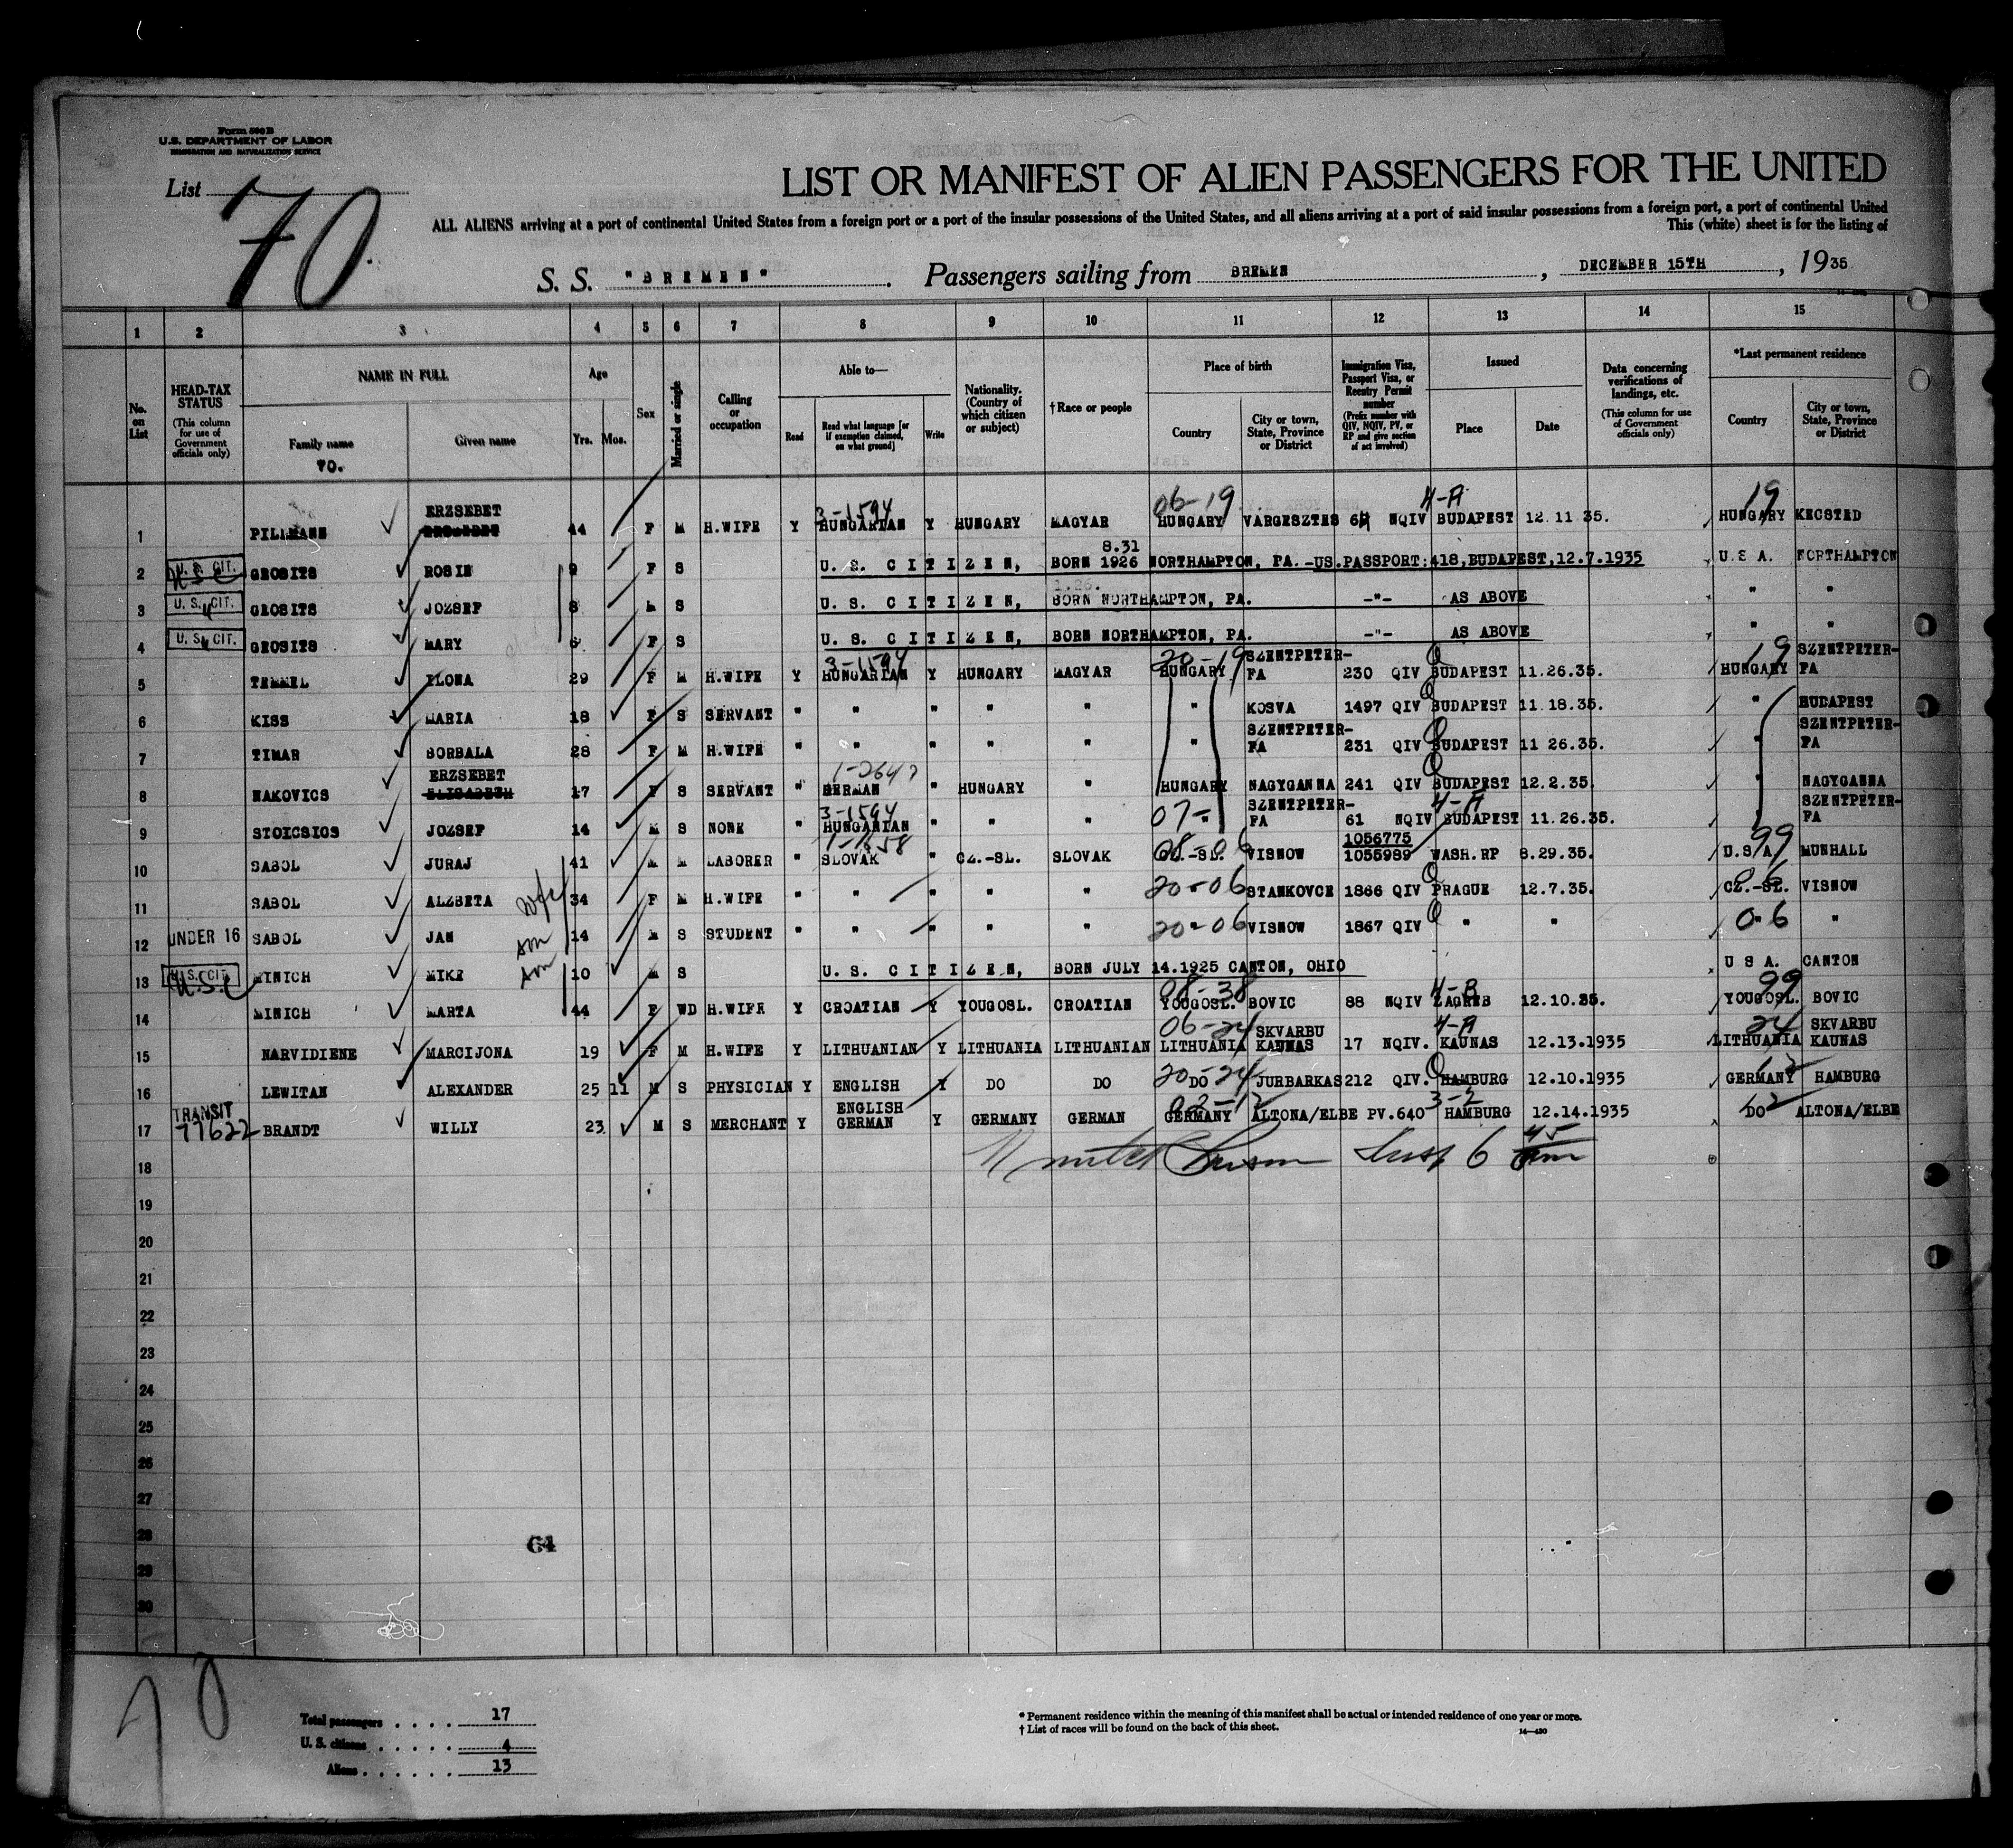 Form 500 B
U.S. DEPARTMENT OF LABOR
IMMIGRATION AND NATURALIZATION SERVICE
List 70
LIST OR MANIFEST OF ALIEN PASSENGERS FOR THE UNITED
ALL ALIENS arriving at a port of continental United States from a foreign port or a port of the insular possessions of the United States, and all aliens arriving at a port of said insular possessions from a foreign port, a port of continental United
This (white) sheet is for the listing of
S. S. "BREMEN". Passengers sailing from BREMEN, DECEMBER 15TH, 1935
1 2 3 4 5 6 7 8 9 10 11 12 13 14 15
No. on List
HEAD-TAX STATUS (This column for use of Government officials only)
NAME IN FULL Family name Given name
70.
Age Yrs. Mos.
Sex
Married or single
Calling or occupation
Able to— Read Read what language [or if exemption claimed, on what ground] Write
Nationality. (Country of which citizen or subject)
†Race or people
Place of birth Country City or town, State, Province or District
Immigration Visa, Passport Visa, or Reentry Permit number (Prefix number with QIV, NQIV, PV, or RP and give section of act involved)
Issued Place Date
Data concerning verifications of landings, etc. (This column for use of Government officials only)
*Last permanent residence Country City or town, State, Province or District
ERZSEBET 3-1594 06-19 4-A 19
1 PILLMANN 44 F M H.WIFE Y HUNGARIAN Y HUNGARY MAGYAR HUNGARY VARGESZTES 64 NQIV BUDAPEST 12.11 35. HUNGARY KECSTED
8.31
2 U. S. CIT. GROSITS ROSIE 9 F S U. S. CITIZEN, BORN 1926 NORTHAMPTON, PA.-US.PASSPORT:418,BUDAPEST,12.7.1935 U.S A. NORTHAMPTON
1.26.
3 U. S. CIT. GROSITS JOZSEF 8 M S U. S. CITIZEN, BORN NORTHAMPTON, PA. -"- AS ABOVE " "
4 U. S. CIT. GROSITS MARY 6 F S U. S. CITIZEN, BORN NORTHAMPTON, PA. -"- AS ABOVE " "
3-1594 20-19 SZENTPETER- 19 SZENTPETER-
5 TEMMEL ILONA 29 F M H.WIFE Y HUNGARIAN Y HUNGARY MAGYAR HUNGARY FA 230 QIV BUDAPEST 11.26.35. HUNGARY FA
6 KISS MARIA 18 F S SERVANT " " " " " " KOSVA 1497 QIV BUDAPEST 11.18.35. " BUDAPEST
SZENTPETER- SZENTPETER-
7 TIMAR BORBALA 28 F M H.WIFE " " " " " " FA 231 QIV BUDAPEST 11 26.35. " FA
ERZSEBET
8 NAKOVICS ELISABETH 17 F S SERVANT " GERMAN " HUNGARY " HUNGARY NAGYGANNA 241 QIV BUDAPEST 12.2.35. " NAGYGANNA
3-1594 07- SZENTPETER- 4-A SZENTPETER-
9 STOICSICS JOZSEF 14 M S NONE " HUNGARIAN " " " " FA 61 NQIV BUDAPEST 11.26.35. FA
1056775 99
10 SABOL JURAJ 41 M M LABORER " SLOVAK " CZ.-SL. SLOVAK CZ.-SL. VISNOW 1055989 WASH.RP 8.29.35. U.S.A. MUNHALL
11 SABOL ALZBETA wife 34 F M H.WIFE " " " " " 20-06 STANKOVCE 1866 QIV PRAGUE 12.7.35. CZ.-SL. VISNOW
12 UNDER 16 SABOL JAN son 14 M S STUDENT " " " " " 20-06 VISNOW 1867 QIV " " 06 "
13 U.S. CIT. U.S.C MINICH MIKE son 10 M S U. S. CITIZEN, BORN JULY 14.1925 CANTON, OHIO U S A. CANTON
08-38 4-B 99
14 MINICH MARTA 44 F WD H.WIFE Y CROATIAN Y YOUGOSL. CROATIAN YOUGOSL. BOVIC 88 NQIV ZAGREB 12.10.35. YOUGOSL. BOVIC
06-24 SKVARBU 4-A 24 SKVARBU
15 NARVIDIENE MARCIJONA 19 F M H.WIFE Y LITHUANIAN Y LITHUANIA LITHUANIAN LITHUANIA KAUNAS 17 NQIV. KAUNAS 12.13.1935 LITHUANIA KAUNAS
16 LEWITAN ALEXANDER 25 11 M S PHYSICIAN Y ENGLISH Y DO DO 20-24 DO JURBARKAS 212 QIV. HAMBURG 12.10.1935 GERMANY HAMBURG
TRANSIT ENGLISH 02-12 3-2
17 77622 BRANDT WILLY 23 M S MERCHANT Y GERMAN Y GERMANY GERMAN GERMANY ALTONA/ELBE PV.640 HAMBURG 12.14.1935 DO ALTONA/ELBE
18
19
20
21
22
23
24
25
26
27
28
64
29
30
70
Total passengers 17
U. S. citizens 4
Aliens 13
* Permanent residence within the meaning of this manifest shall be actual or intended residence of one year or more.
† List of races will be found on the back of this sheet.
14—430